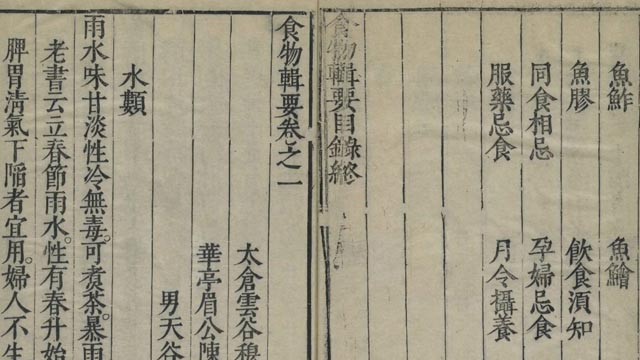 魚鮓 魚鱠
魚膠 飲食須知
同食相忌 孕婦忌食
服藥忌食 月令攝養
食物輯要目錄終
食物輯要卷之一
太倉雲谷穆
華亭眉公陳
男天谷
水類
雨水味甘淡性冷無毒。可煑茶。暴雨
老書云立春節雨水。性有春升始
脾胃清氣下陷者宜用。婦人不生